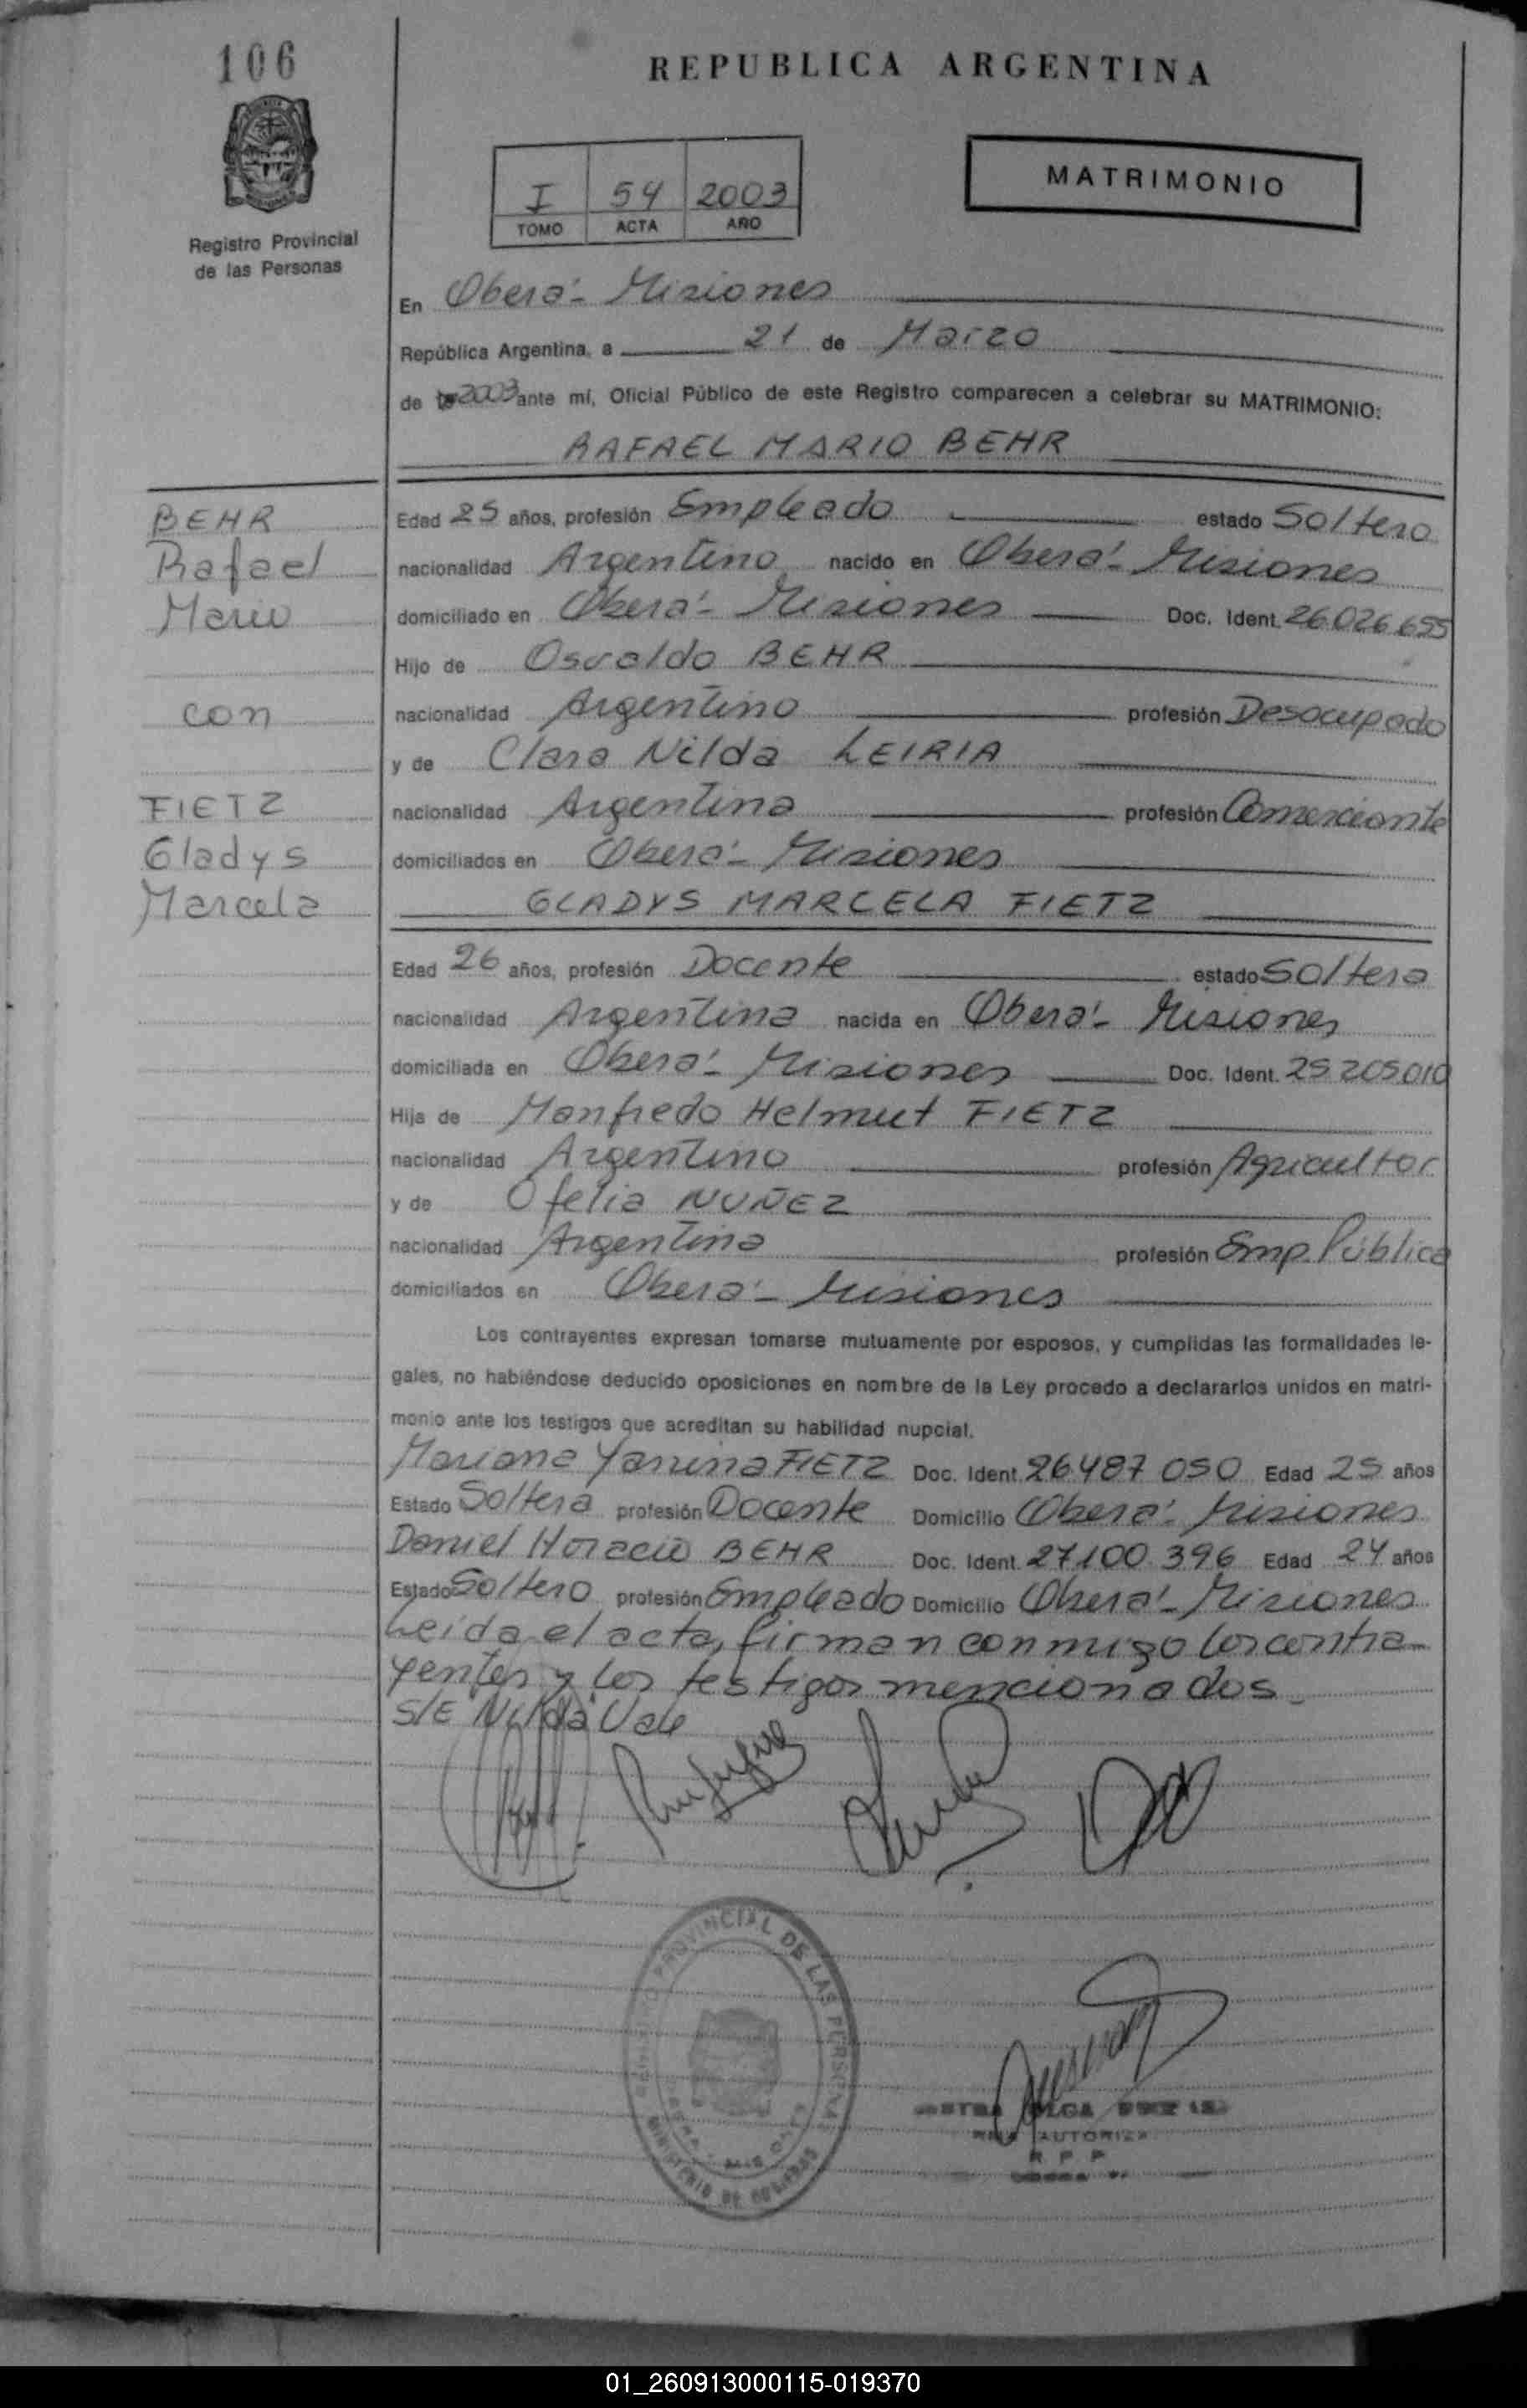 106
REPUBLICA ARGENTINA
Registro Provincial
de las Personas
I 54 2003
TOMO ACTA AÑO
MATRIMONIO
En Oberá - Misiones
República Argentina, a 21 de Marzo
de 2003 ante mí, Oficial Público de este Registro comparecen a celebrar su MATRIMONIO:
RAFAEL MARIO BEHR
BEHR
Rafael
Mario
con
FIETZ
Gladys
Marcela
Edad 25 años, profesión Empleado estado Soltero
nacionalidad Argentino nacido en Oberá - Misiones
domiciliado en Oberá - Misiones Doc. Ident. 26.026.655
Hijo de Osvaldo BEHR
nacionalidad Argentino profesión Desocupado
y de Clara Nilda LEIRIA
nacionalidad Argentina profesión Comerciante
domiciliados en Oberá - Misiones
GLADYS MARCELA FIETZ
Edad 26 años, profesión Docente estado Soltera
nacionalidad Argentina nacida en Oberá - Misiones
domiciliada en Oberá - Misiones Doc. Ident. 25.205.010
Hija de Manfredo Helmut FIETZ
nacionalidad Argentino profesión Agricultor
y de Ofelia NUÑEZ
nacionalidad Argentina profesión Emp. Pública
domiciliados en Oberá - Misiones
Los contrayentes expresan tomarse mutuamente por esposos, y cumplidas las formalidades le-
gales, no habiéndose deducido oposiciones en nombre de la Ley procedo a declararlos unidos en matri-
monio ante los testigos que acreditan su habilidad nupcial.
Mariana Yanina FIETZ Doc. Ident. 26.487.050 Edad 25 años
Estado Soltera profesión Docente Domicilio Oberá - Misiones
Daniel Horacio BEHR Doc. Ident. 27.100.396 Edad 24 años
Estado Soltero profesión Empleado Domicilio Oberá - Misiones
Leída el acta, firman conmigo los contra-
yentes y los testigos mencionados.
S/E Nilda Vale
PROVINCIAL DE LAS PERSONAS
MINISTERIO DE GOBIERNO
OLGA
AUTORIZA
R P P
01_260913000115-019370